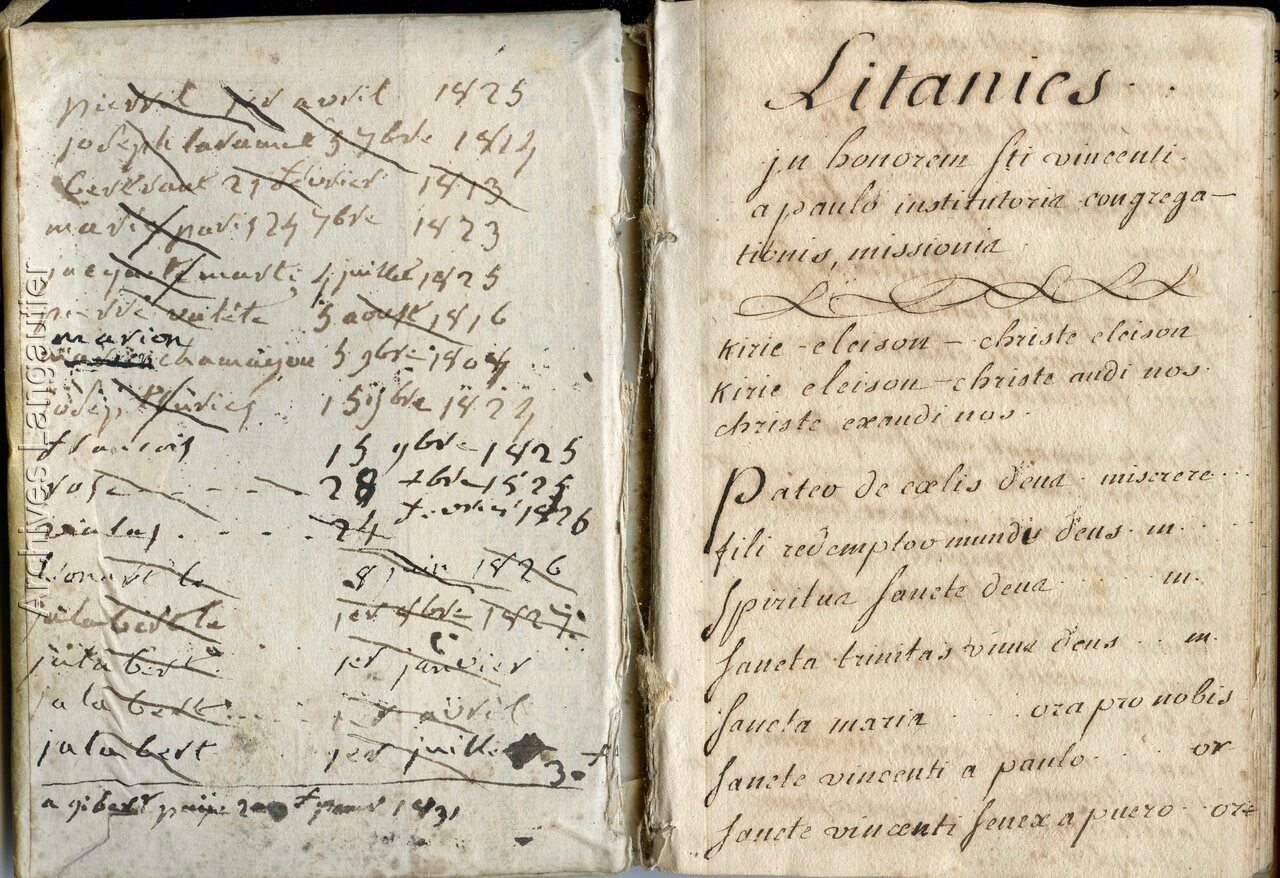 pierril 1er avril 1825
joseph laramet 5 7bre 1814
bertrant 21 fevrier 1813
marie paris 24 7bre 1823
jacquet marti 4 juillet 1825
pierre valete 5 aoust 1816
marion
chamayou 5 9bre 1804
josep 15 9bre 1824
francois 15 9bre 1825
rose 28 xbre 1825
24 fevrier 1826
8 juin 1826
jalabert le 1er 1827
jalabert 1er janvier
jalabert 1er avril
jalabert 1er juillet
3
a gibert 1831
Archives Langautier
Litanies
jn honorem sti vincenti
a paulo institutoris congrega-
tionis, missionis
kirie - eleison - christe eleison
kirie eleison - christe audi nos
christe exaudi nos
Pater de cœlis deus miserere
fili redemptor mundi deus m
Spiritus sancte deus m
Sancta trinitas unus deus m
Sancta maria ora pro nobis
Sancte vincenti a paulo or
Sancte vincenti senex a puero ora